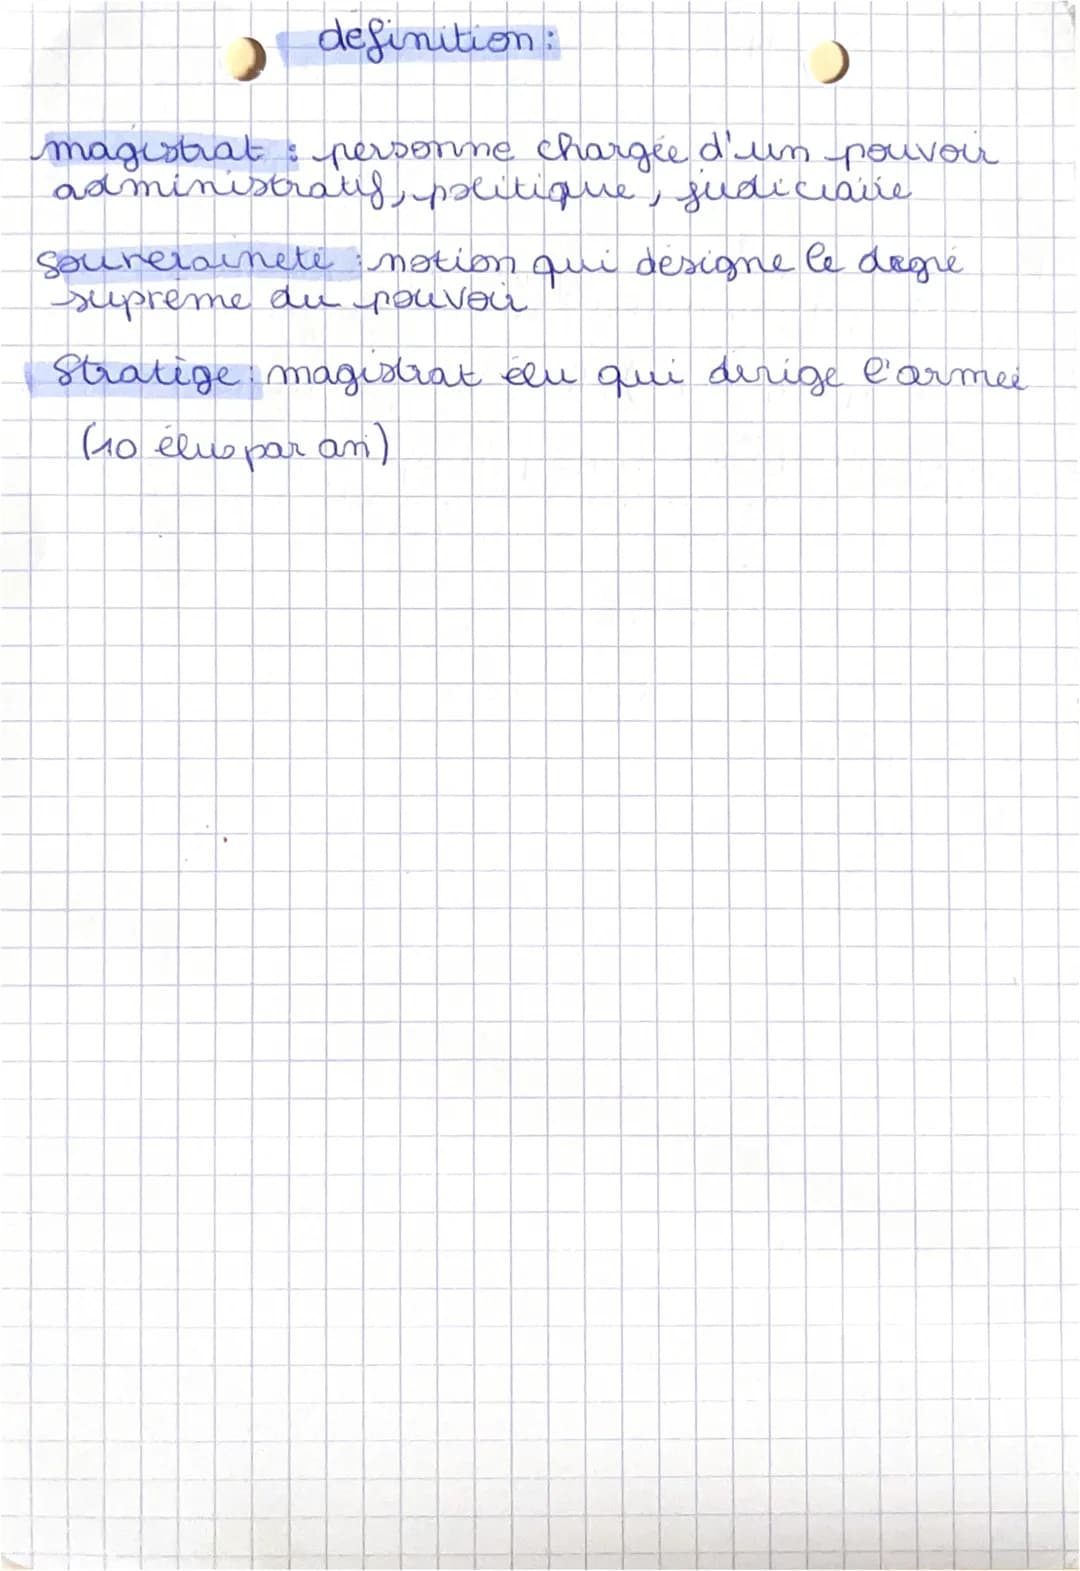 definition :
magistrat : personne chargée d'un pouvoir
administratif, politique, judiciaire
souveraineté : notion qui désigne le degré
suprême du pouvoir
Stratège : magistrat élu qui dirige l'armée
(10 élus par an)